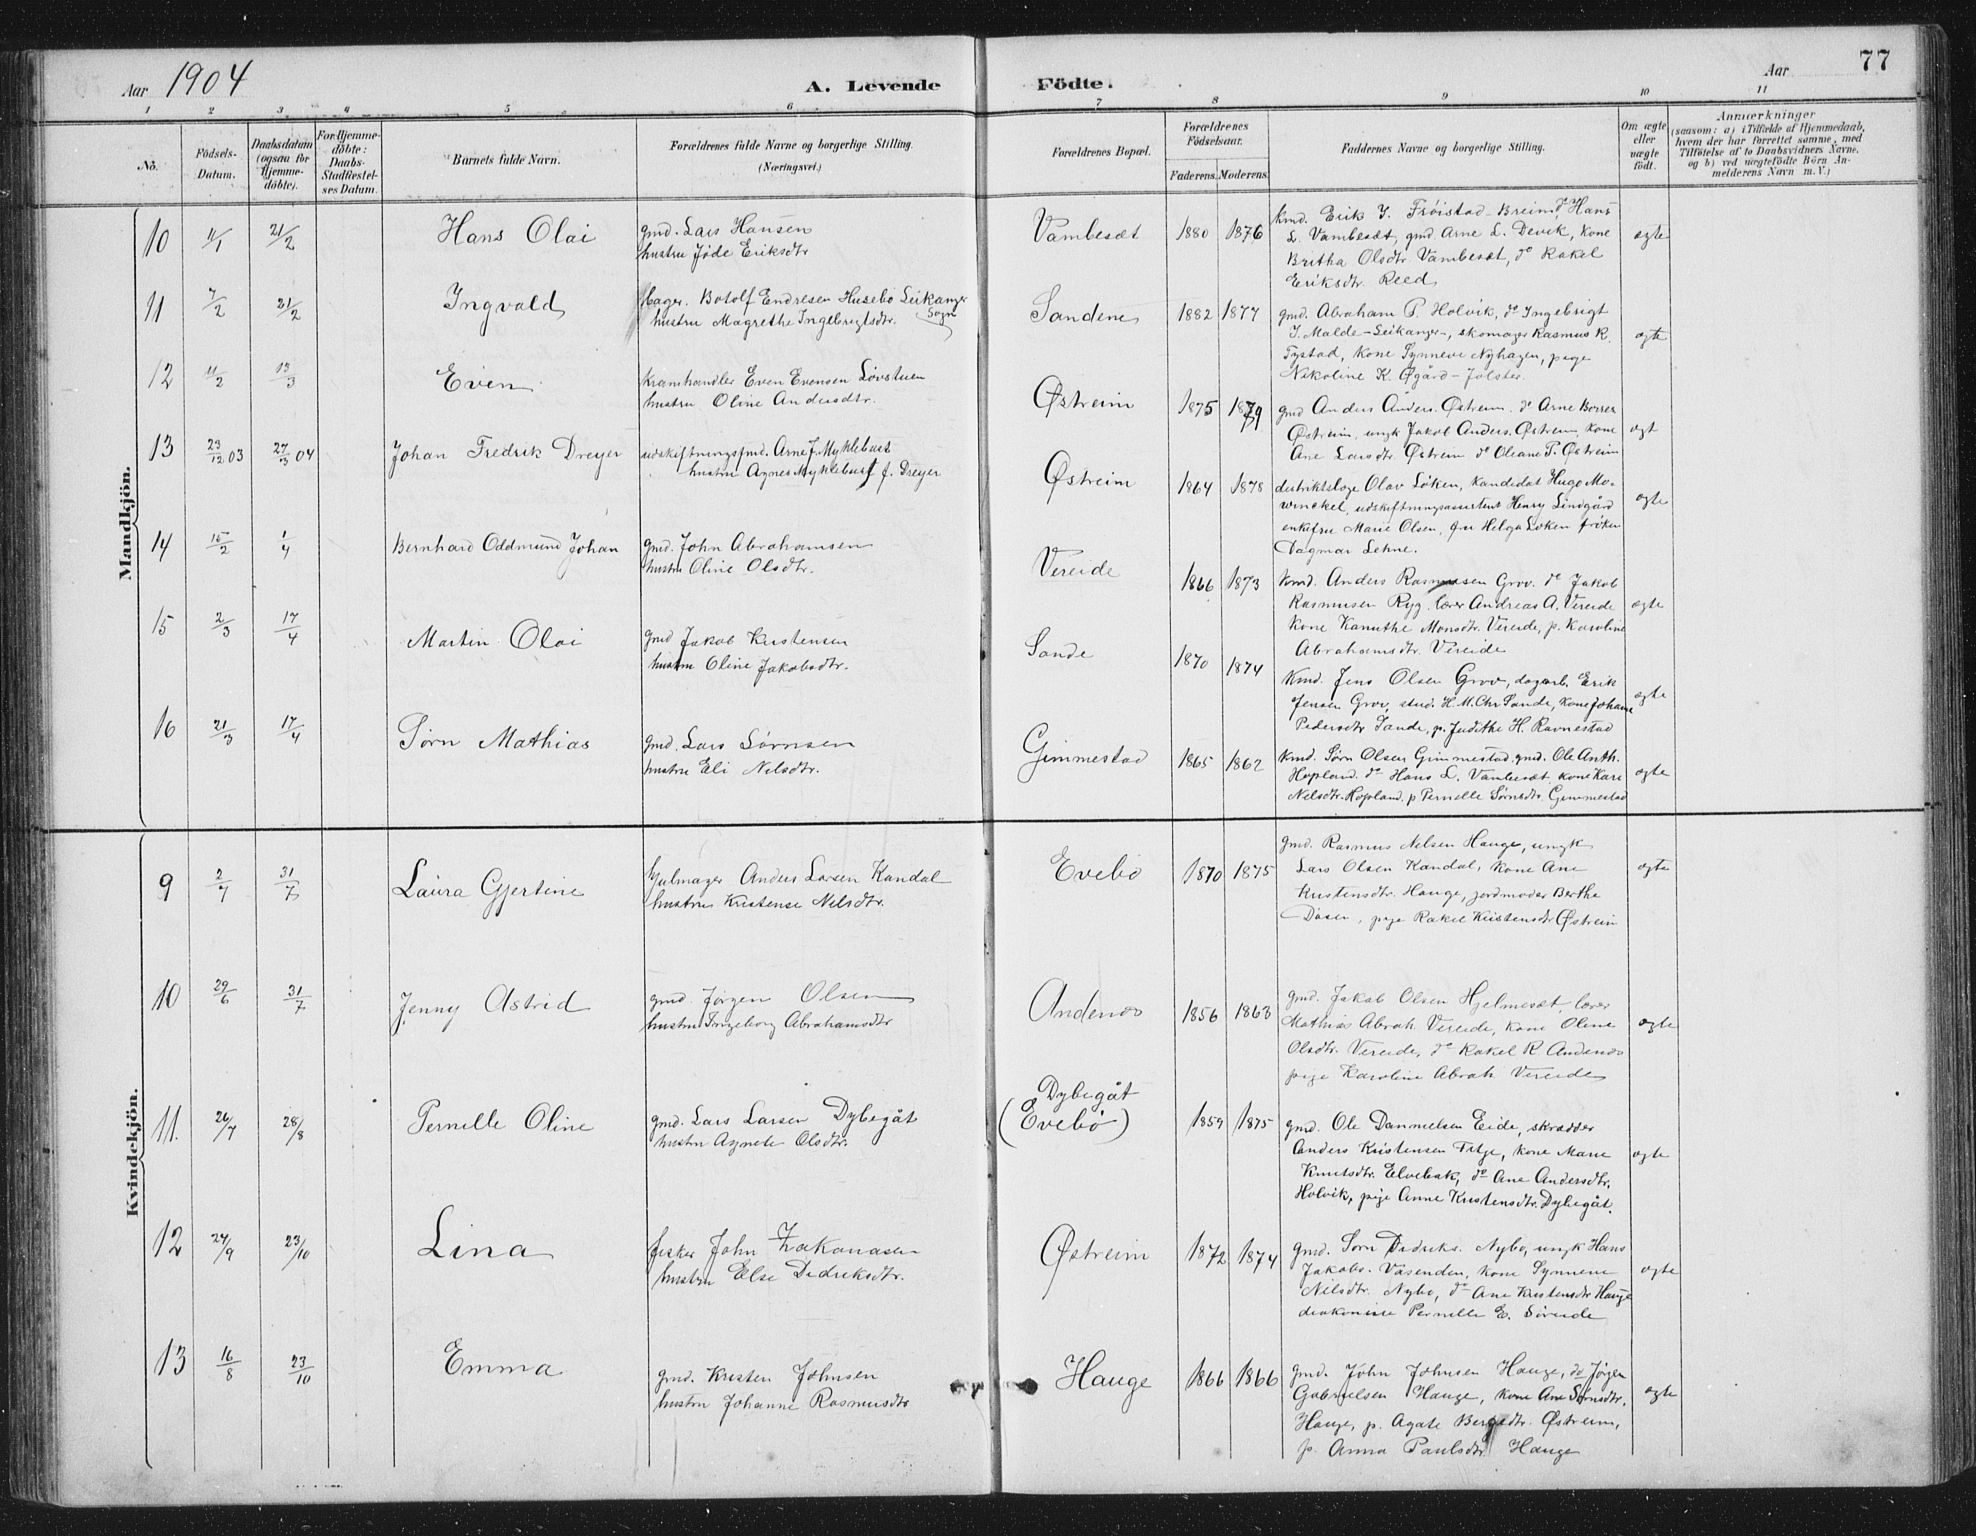 Aar 1904
A. Levende Födte.
Aar 77
1 2 3 4 5 6 7 8 9 10 11
No.
Födsels-Datum.
Daabsdatum (ogsaa for Hjemme-döbte).
For Hjemme-döbte: Daabs-Stadfestel-ses Datum.
Barnets fulde Navn.
Forældrenes fulde Navne og borgerlige Stilling. (Næringsvei.)
Forældrenes Bopæl.
Forældrenes Födselsaar.
Faderens. Moderens.
Faddernes Navne og borgerlige Stilling.
Om ægte eller uægte födt.
Anmærkninger
(saasom: a) i Tilfælde af Hjemmedaab,
hvem der har forrettet samme, med
Tilföielse af to Daabsvidners Navne,
og b) ved uægtefödte Börn An-
melderens Navn m. V.)
Mandkjön.
10 11/1 21/2 Hans Olai
gmd. Lars Hansen
hustru Jøde Eriksdtr
Vambesæt 1880 1876
kmd. Erik J. Frøistad-Breim, do Hans
L. Vambesæt, gmd Arne L. Devik, kone
Britha Olsdtr Vambesæt, do Rakel
Eriksdtr. Reed
ægte
11 7/2 21/2 Ingvald
bager. Botolf Endresen Husebø Leikanger
hustru Magrethe Ingebrigtsdtr. Sogn
Sandene 1882 1877
gmd. Abraham P. Holvik, do Ingebrigt
J. Malde-Leikanger-, skomager Rasmus R.
Tystad, kone Synneve Nyhagen, pige
Nikoline K. Øgård-Jølster.
ægte
12 11/2 13/3 Even
Kramhandler Even Evensen Løvstuen
hustru Oline Andersdtr.
Østreim 1875 1879
gmd Anders Anders. Østreim. do Arne
Østreim, ungk Jakob Anders. Østreim, kone
Ane Larsdtr. Østreim do Oleane P. Østreim
ægt
13 23/12 03 27/3 04 Johan Fredrik Dreyer
udskiftningsfmd. Arne J. Myklebust
hustru Agnes Myklebust f. Dreyer
Østreim 1864 1878
distriktslæge Olav Løken, Kandidat Hugo Mo-
winckel, udskiftningsassistent Henry Lindgård
enkefru Marie Olsen, fru Helga Løken frøken
Dagmar Lehne.
ægte
14 15/2 1/4 Bernhard Oddmund Johan
gmd. John Abrahamsen
hustru Oline Olsdtr.
Vereide 1866 1873
kmd. Anders Rasmussen Grov. do Jakob
Rasmusen Ryg. lærer Andreas A. Vereide
kone Kanuthe Monsdtr. Vereide, p. Karoline
Abrahamsdtr. Vereide
ægte
15 2/3 17/4 Martin Olai
gmd Jakob Kristensen
hustru Oline Jakobsdtr.
Sande 1870 1874
Kmd. Jens Olsen Grov, dagarb. Erik
Jensen Grov, stud. H. M. Chr Sande, kone Johanne
Pedersdtr Sande, p. Judithe H. Ravnestad
ægte
16 21/3 17/4 Sørn Mathias
gmd. Lars Sørnsen
hustru Eli Nilsdtr.
Gimmestad 1865 1862
Kmd. Sørn Olsen Gimmestad. gmd. Ole Anth.
Hopland. do Hans L. Vambesæt kone Kari
Nelsdtr. Hopland. p Pernelle Sørnsdtr. Gimmestad
ægte
Kvindekjön.
9 2/7 31/7 Laura Gjertine
hjulmager Anders Larsen Kandal
hustru Kristense Nilsdtr.
Evebø 1870 1875
gmd. Rasmus Nelsen Hauge, ungk
Lars Olsen Kandal, kone Ane
Kristensdtr. Hauge, jordmoder Berthe
Døsen, pige Rakel Kristensdtr Østreim
ægte
10 29/6 31/7 Jenny Astrid
gmd. Jørgen Olsen
hustru Ingeborg Abrahamsdtr
Andenæs 1856 1863
gmd. Jakob Olsen Hjelmesæt, lærer
Mathias Abrah. Vereide, kone Oline
Olsdtr. Vereide, do Rakel R. Andenæs
pige Karoline Abrah. Vereide
ægte
11. 26/7 28/8 Pernelle Oline
gmd. Lars Larsen Dybegåt
hustru Agnete Olsdtr.
Dybegåt
(Evebø) 1859 1875
gmd. Ole Danmelsen Eide, skrædder
Anders Kristensen Fitje, kone Marie
Knutsdtr. Elvebak, do Ane Andersdtr.
Holvik, pige Anne Kristensdtr. Dybegåt.
ægte
12 24/9 23/10 Lina
fisker John Zakariasen
hustru Else Didriksdtr.
Østreim 1872 1874
gmd. Sørn Didriks. Nybø, ungk Hans
Jakobs. Vasenden, kone Synneve
Nilsdtr. Nybø, do Ane Kristensdtr Hauge
diakonisse Pernelle E. Søreide
ægte
13 16/8 23/10 Emma
gmd. Kristen Johnsen
hustru Johanne Rasmusdtr
Hauge 1866 1866
gmd. John Johnsen Hauge, do Jørgen
Gabrielsen Hauge, kone Ane Sørnsdtr.
Hauge, p. Agate Bergedtr. Østreim,
p. Anna Paulsdtr. Hauge
ægte